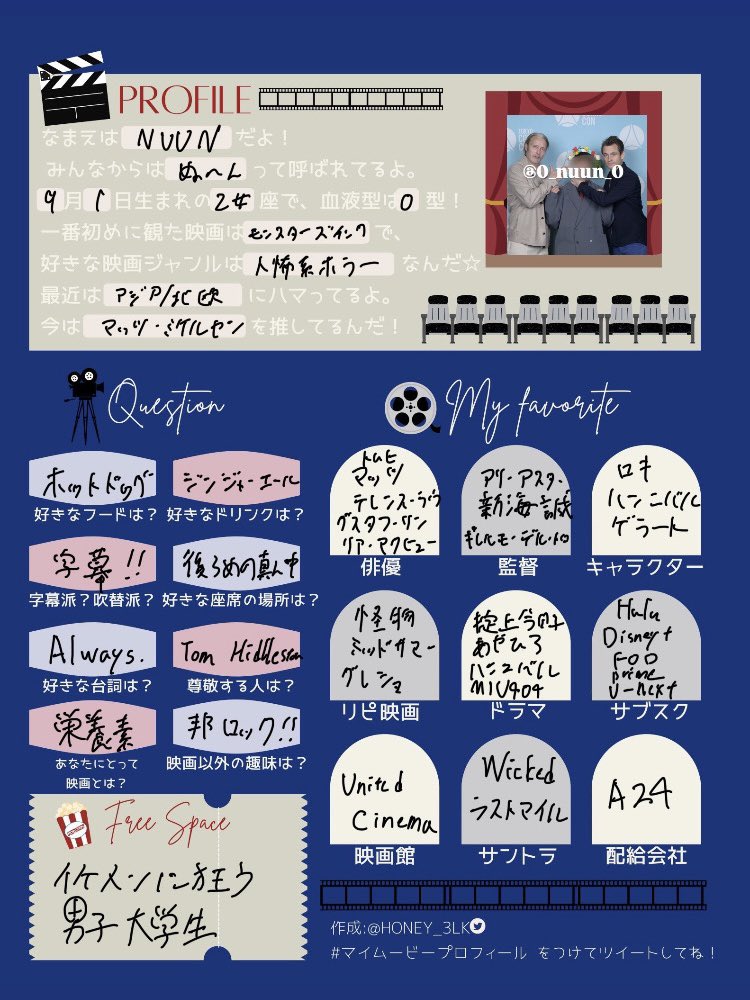 PROFILE
なまえは NUUN だよ！
みんなからは ぬへん って呼ばれてるよ。
9月1日生まれの 乙女 座で、血液型は O 型！
一番初めに観た映画は モンスターズインク で、
好きな映画ジャンルは 人怖系ホラー なんだ☆
最近は アジア/北欧 にハマってるよ。
今は マッツ・ミケルセン を推してるんだ！
CON
@0_nuun_0
Question
ホットドッグ
好きなフードは？
ジンジャーエール
好きなドリンクは？
字幕!!
字幕派？吹替派？
後ろめの真ん中
好きな座席の場所は？
Always.
好きな台詞は？
Tom Hiddleston
尊敬する人は？
栄養素
あなたにとって
映画とは？
邦ロック!!
映画以外の趣味は？
My favorite
トムヒ
マッツ
テレンス・ラウ
グスタフ・リン
リア・マクヒュー
俳優
アリ・アスター
新海誠
ギレルモ・デル・トロ
監督
ロキ
ハンニバル
ゲラート
キャラクター
怪物
ミッドサマー
グレショ
リピ映画
掟上今日子
あやひろ
ハンニバル
MIU404
ドラマ
Hulu
Disney+
FOD
prime
U-NEXT
サブスク
United
Cinema
映画館
Wicked
ラストマイル
サントラ
A24
配給会社
Free Space
イケメンに狂う
男子大学生
作成:@HONEY_3LK
#マイムービープロフィール をつけてツイートしてね！